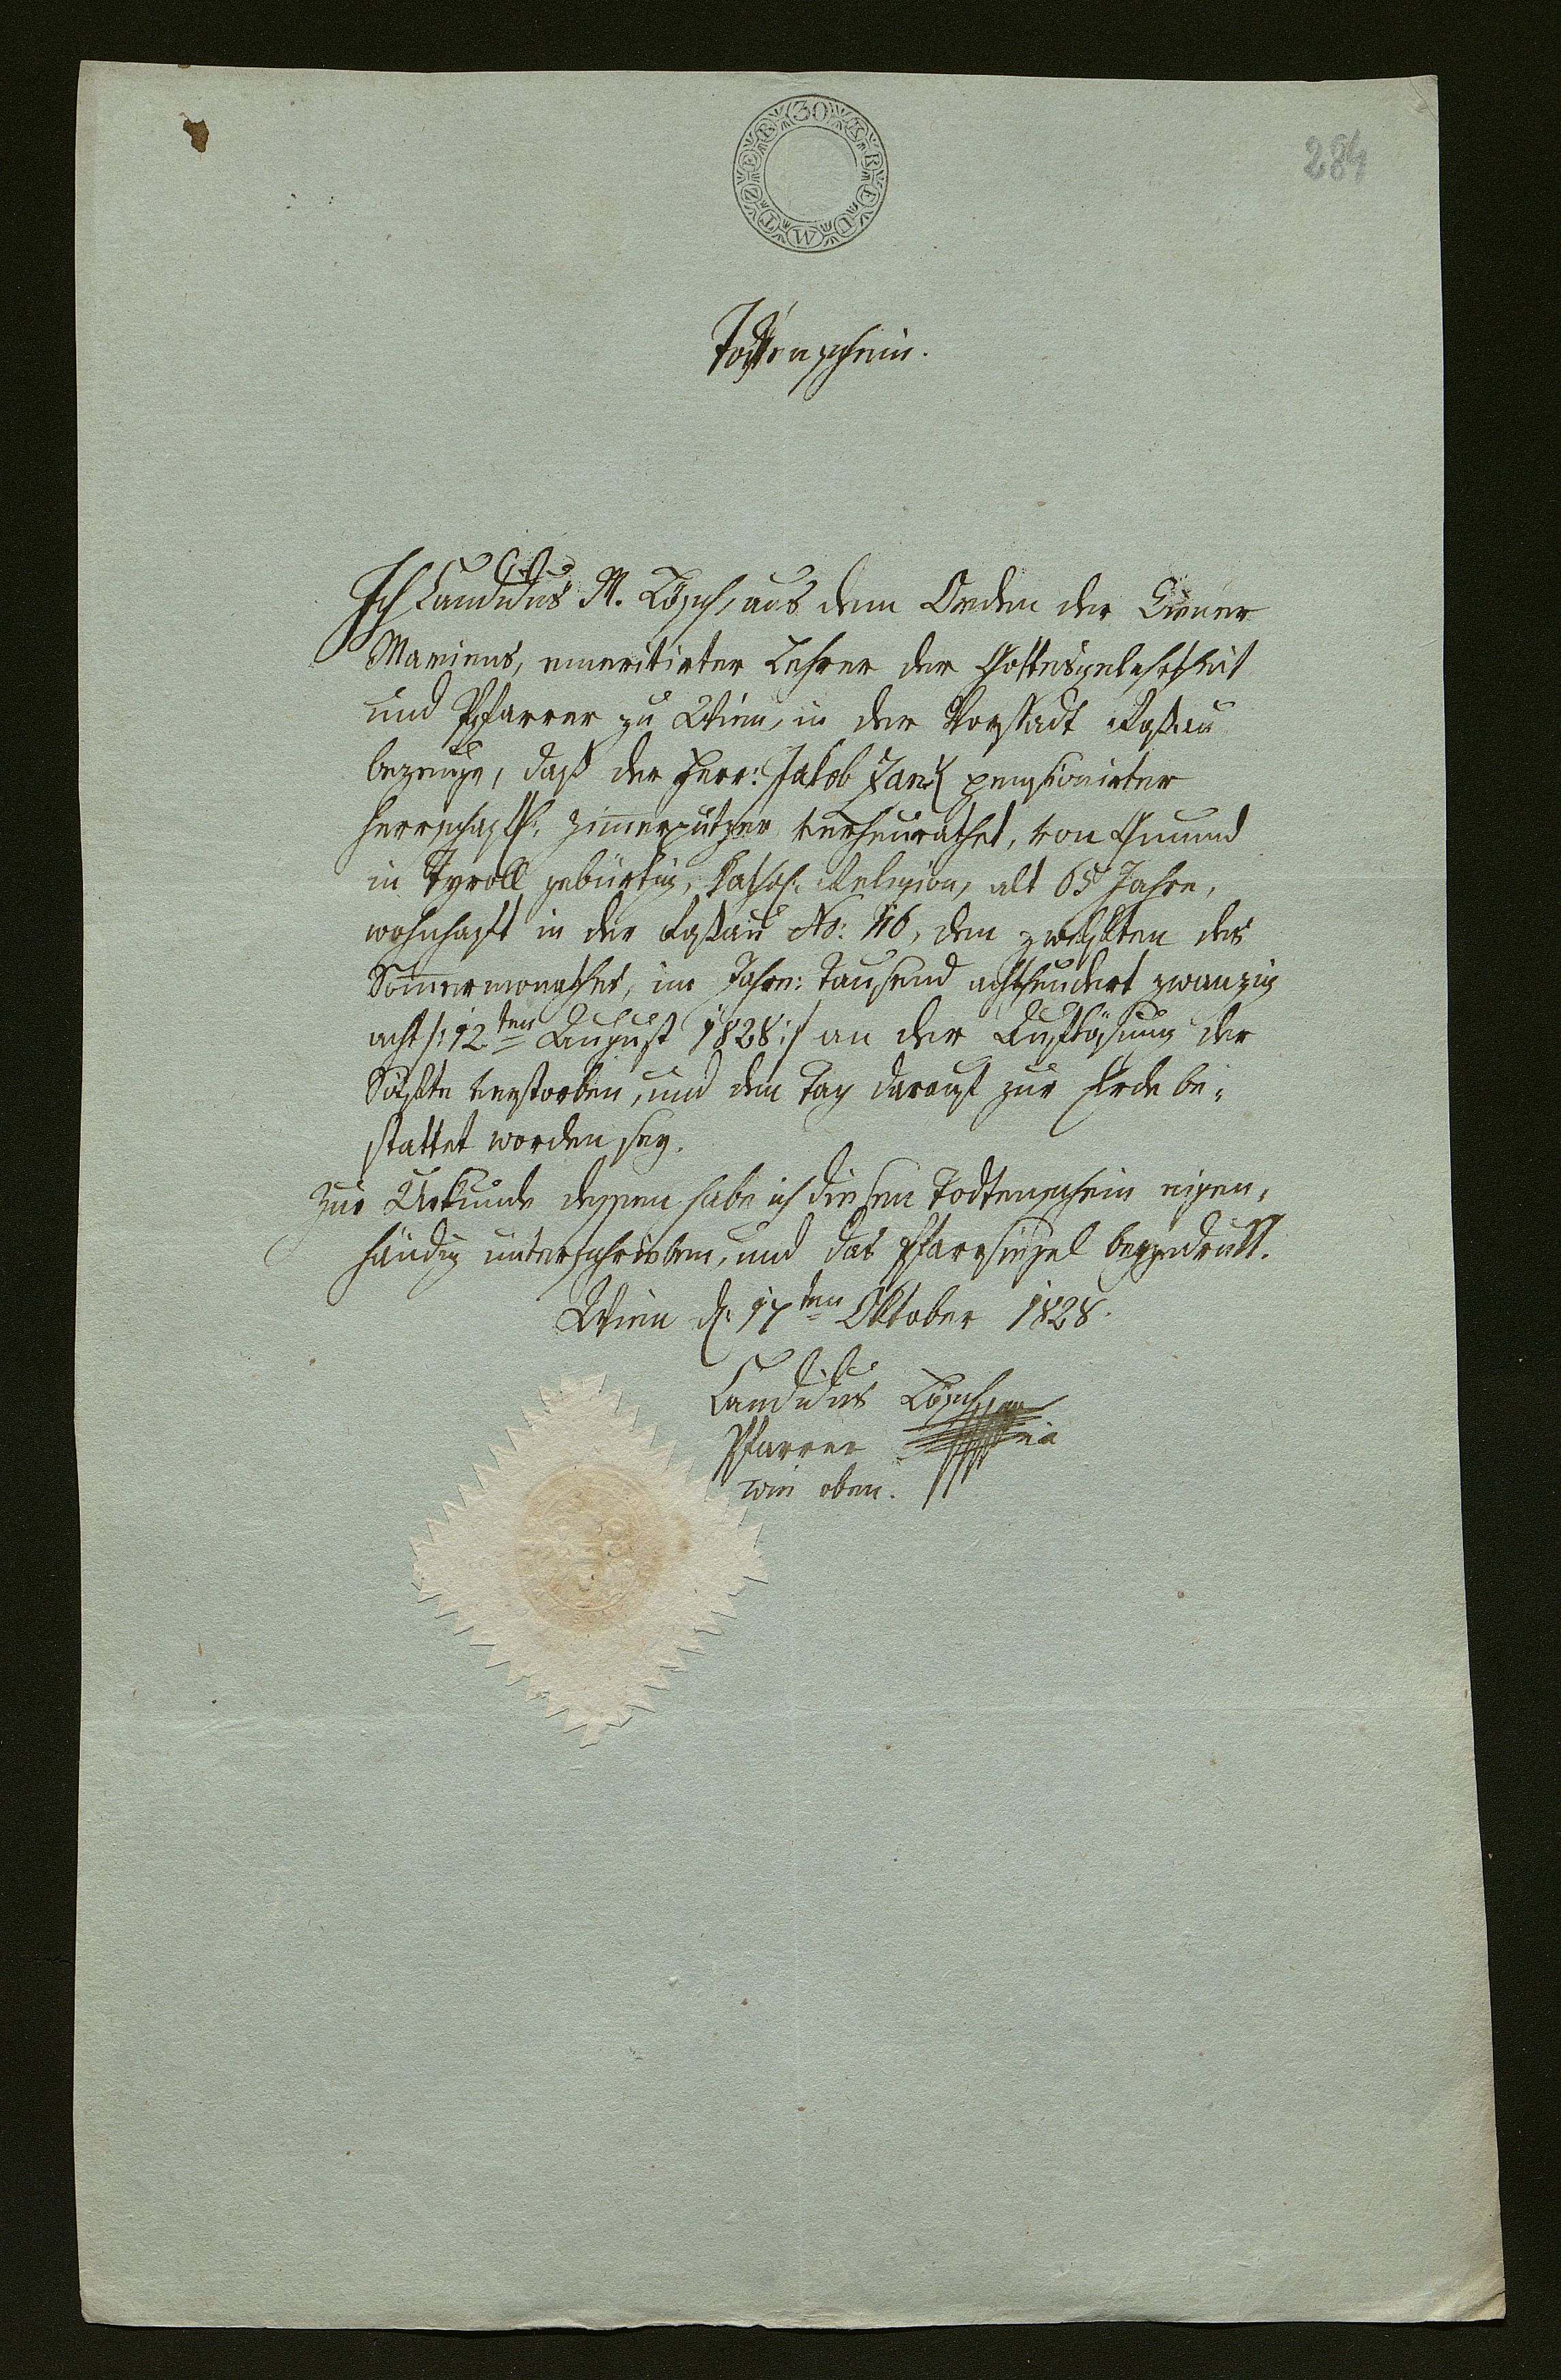 30 KREUTZER
284
Todtenschein.
Ich Candidus M. Lösch, aus dem Orden der Diener
Mariens, emeritirter Lehrer der Gottesgelahrtheit
und Pfarrer zu Wien, in der Vorstadt Roßau
bezeuge, daß der Herr: Jakob pensionirter
herrschaftl. Zimmerputzer verheurathet, von Gmund
in Tyroll gebürtig, kathol: Religion, alt 65 Jahre,
wohnhaft in der Roßau No: 116, den zwölften des
Sommermonathes, im Jahre: Tausend achthundert zwanzig
acht /: 12ten August 1828 :/ an der Auflösung der
Säfte verstorben, und den Tag darauf zur Erde be¬
stattet worden sey.
Zur Urkunde dessen habe ich diesen Todtenschein eigen¬
händig unterschrieben, und das Pfarrsiegel beygedrukt.
Wien d: 17ten Oktober 1828.
Candidus Lösch
Pfarrer
wie oben.